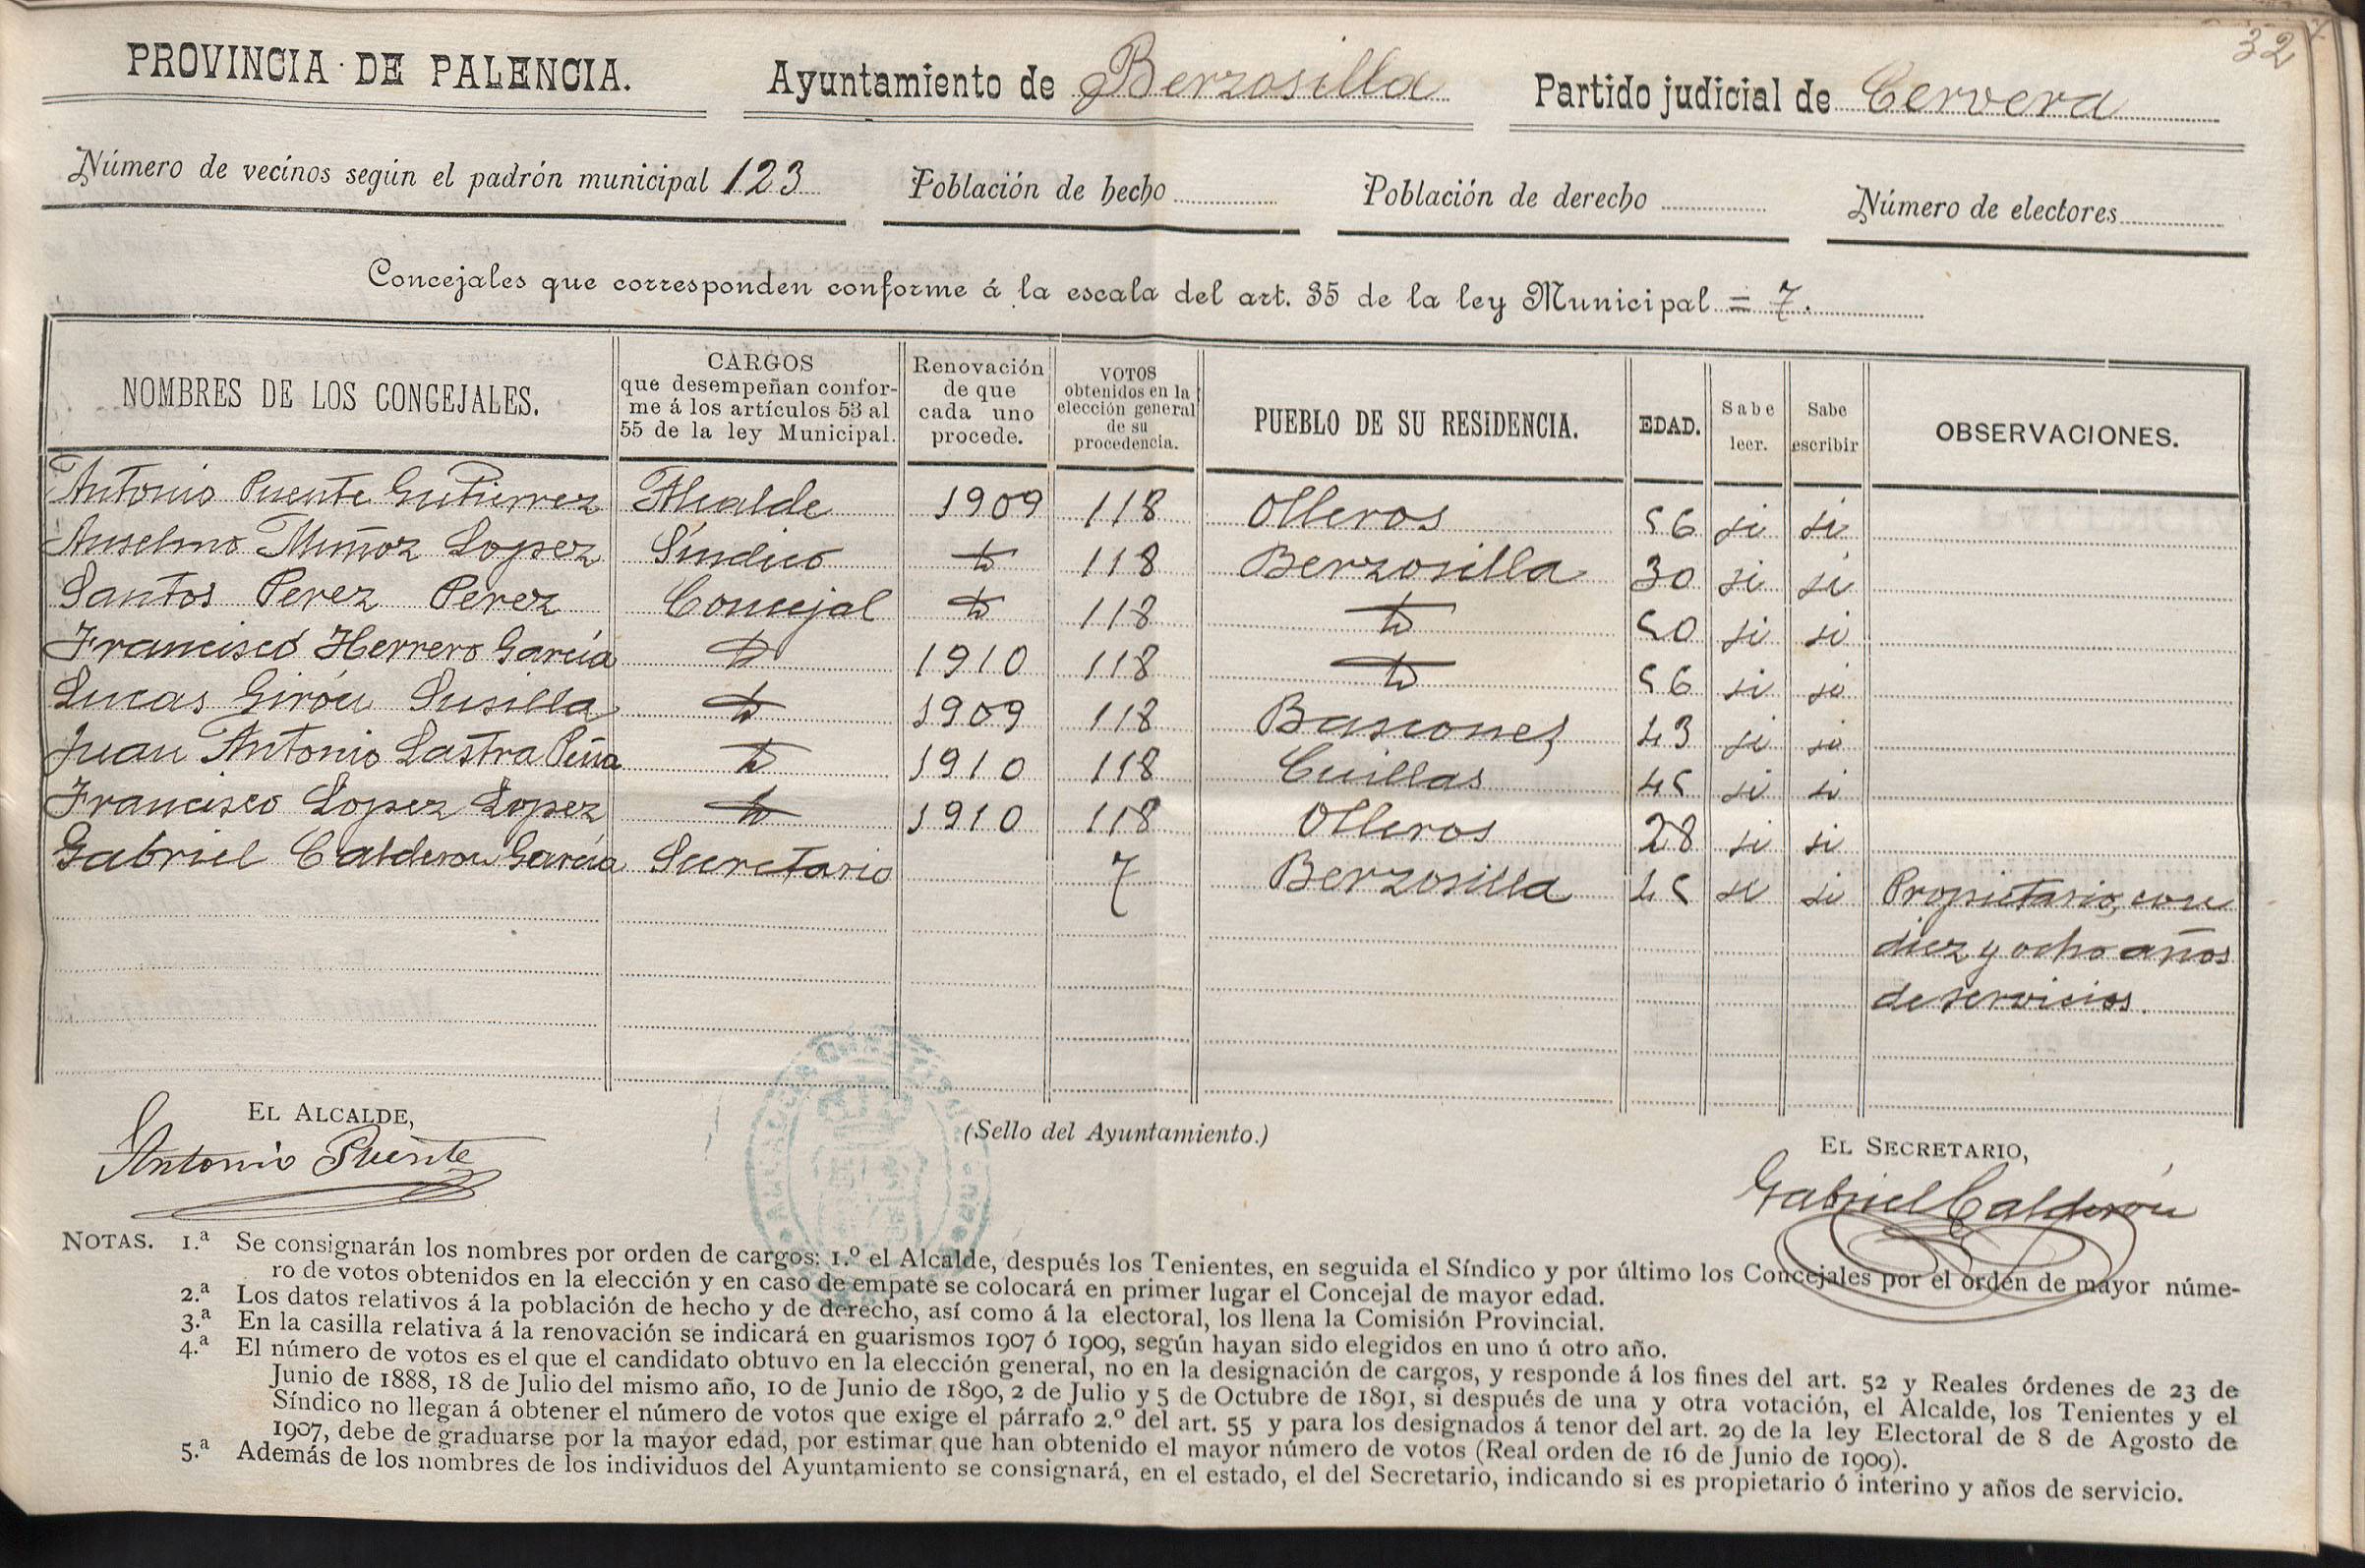 32
PROVINCIA DE PALENCIA. Ayuntamiento de Berzosilla Partido judicial de Cervera
Número de vecinos según el padrón municipal 123 Población de hecho Población de derecho Número de electores
Concejales que corresponden conforme á la escala del art. 35 de la ley Municipal = 7.
NOMBRES DE LOS CONCEJALES. CARGOS que desempeñan confor-me á los artículos 53 al 55 de la ley Municipal. Renovación de que cada uno procede. VOTOS obtenidos en la elección general de su procedencia. PUEBLO DE SU RESIDENCIA. EDAD. Sabe leer. Sabe escribir OBSERVACIONES.
Antonio Puente Gutierrez Alcalde 1909 118 Olleros 56 si si
Anselmo Muñoz Lopez Síndico 118 Berzosilla 30 si si
Santos Perez Perez Concejal 118 50 si si
Francisco Herrero García 1910 118 56 si si
Lucas Girón Susilla 1909 118 Bascones 43 si si
Juan Antonio Lastra Peña 1910 118 Cuillas 45 si si
Francisco Lopez Lopez 1910 118 Olleros 28 si si
Gabriel Calderon García Secretario 7 Berzosilla 45 si si Propietario, con
diez y ocho años
de servicios.
EL ALCALDE,
Antonio Puente
(Sello del Ayuntamiento.)
EL SECRETARIO,
Gabriel Calderón
NOTAS. 1.ª Se consignarán los nombres por orden de cargos: 1.º el Alcalde, después los Tenientes, en seguida el Síndico y por último los Concejales por el orden de mayor núme-
ro de votos obtenidos en la elección y en caso de empate se colocará en primer lugar el Concejal de mayor edad.
2.ª Los datos relativos á la población de hecho y de derecho, así como á la electoral, los llena la Comisión Provincial.
3.ª En la casilla relativa á la renovación se indicará en guarismos 1907 ó 1909, según hayan sido elegidos en uno ú otro año.
4.ª El número de votos es el que el candidato obtuvo en la elección general, no en la designación de cargos, y responde á los fines del art. 52 y Reales órdenes de 23 de
Junio de 1888, 18 de Julio del mismo año, 10 de Junio de 1890, 2 de Julio y 5 de Octubre de 1891, si después de una y otra votación, el Alcalde, los Tenientes y el
Síndico no llegan á obtener el número de votos que exige el párrafo 2.º del art. 55 y para los designados á tenor del art. 29 de la ley Electoral de 8 de Agosto de
1907, debe de graduarse por la mayor edad, por estimar que han obtenido el mayor número de votos (Real orden de 16 de Junio de 1909).
5.ª Además de los nombres de los individuos del Ayuntamiento se consignará, en el estado, el del Secretario, indicando si es propietario ó interino y años de servicio.